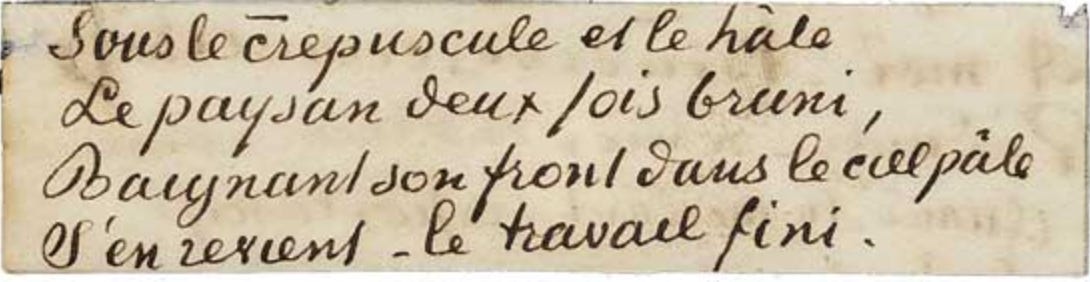 Sous le crepuscule et le hâle
Le paysan deux fois bruni,
Baignant son front dans le ciel pâle
S'en revient - le travail fini.